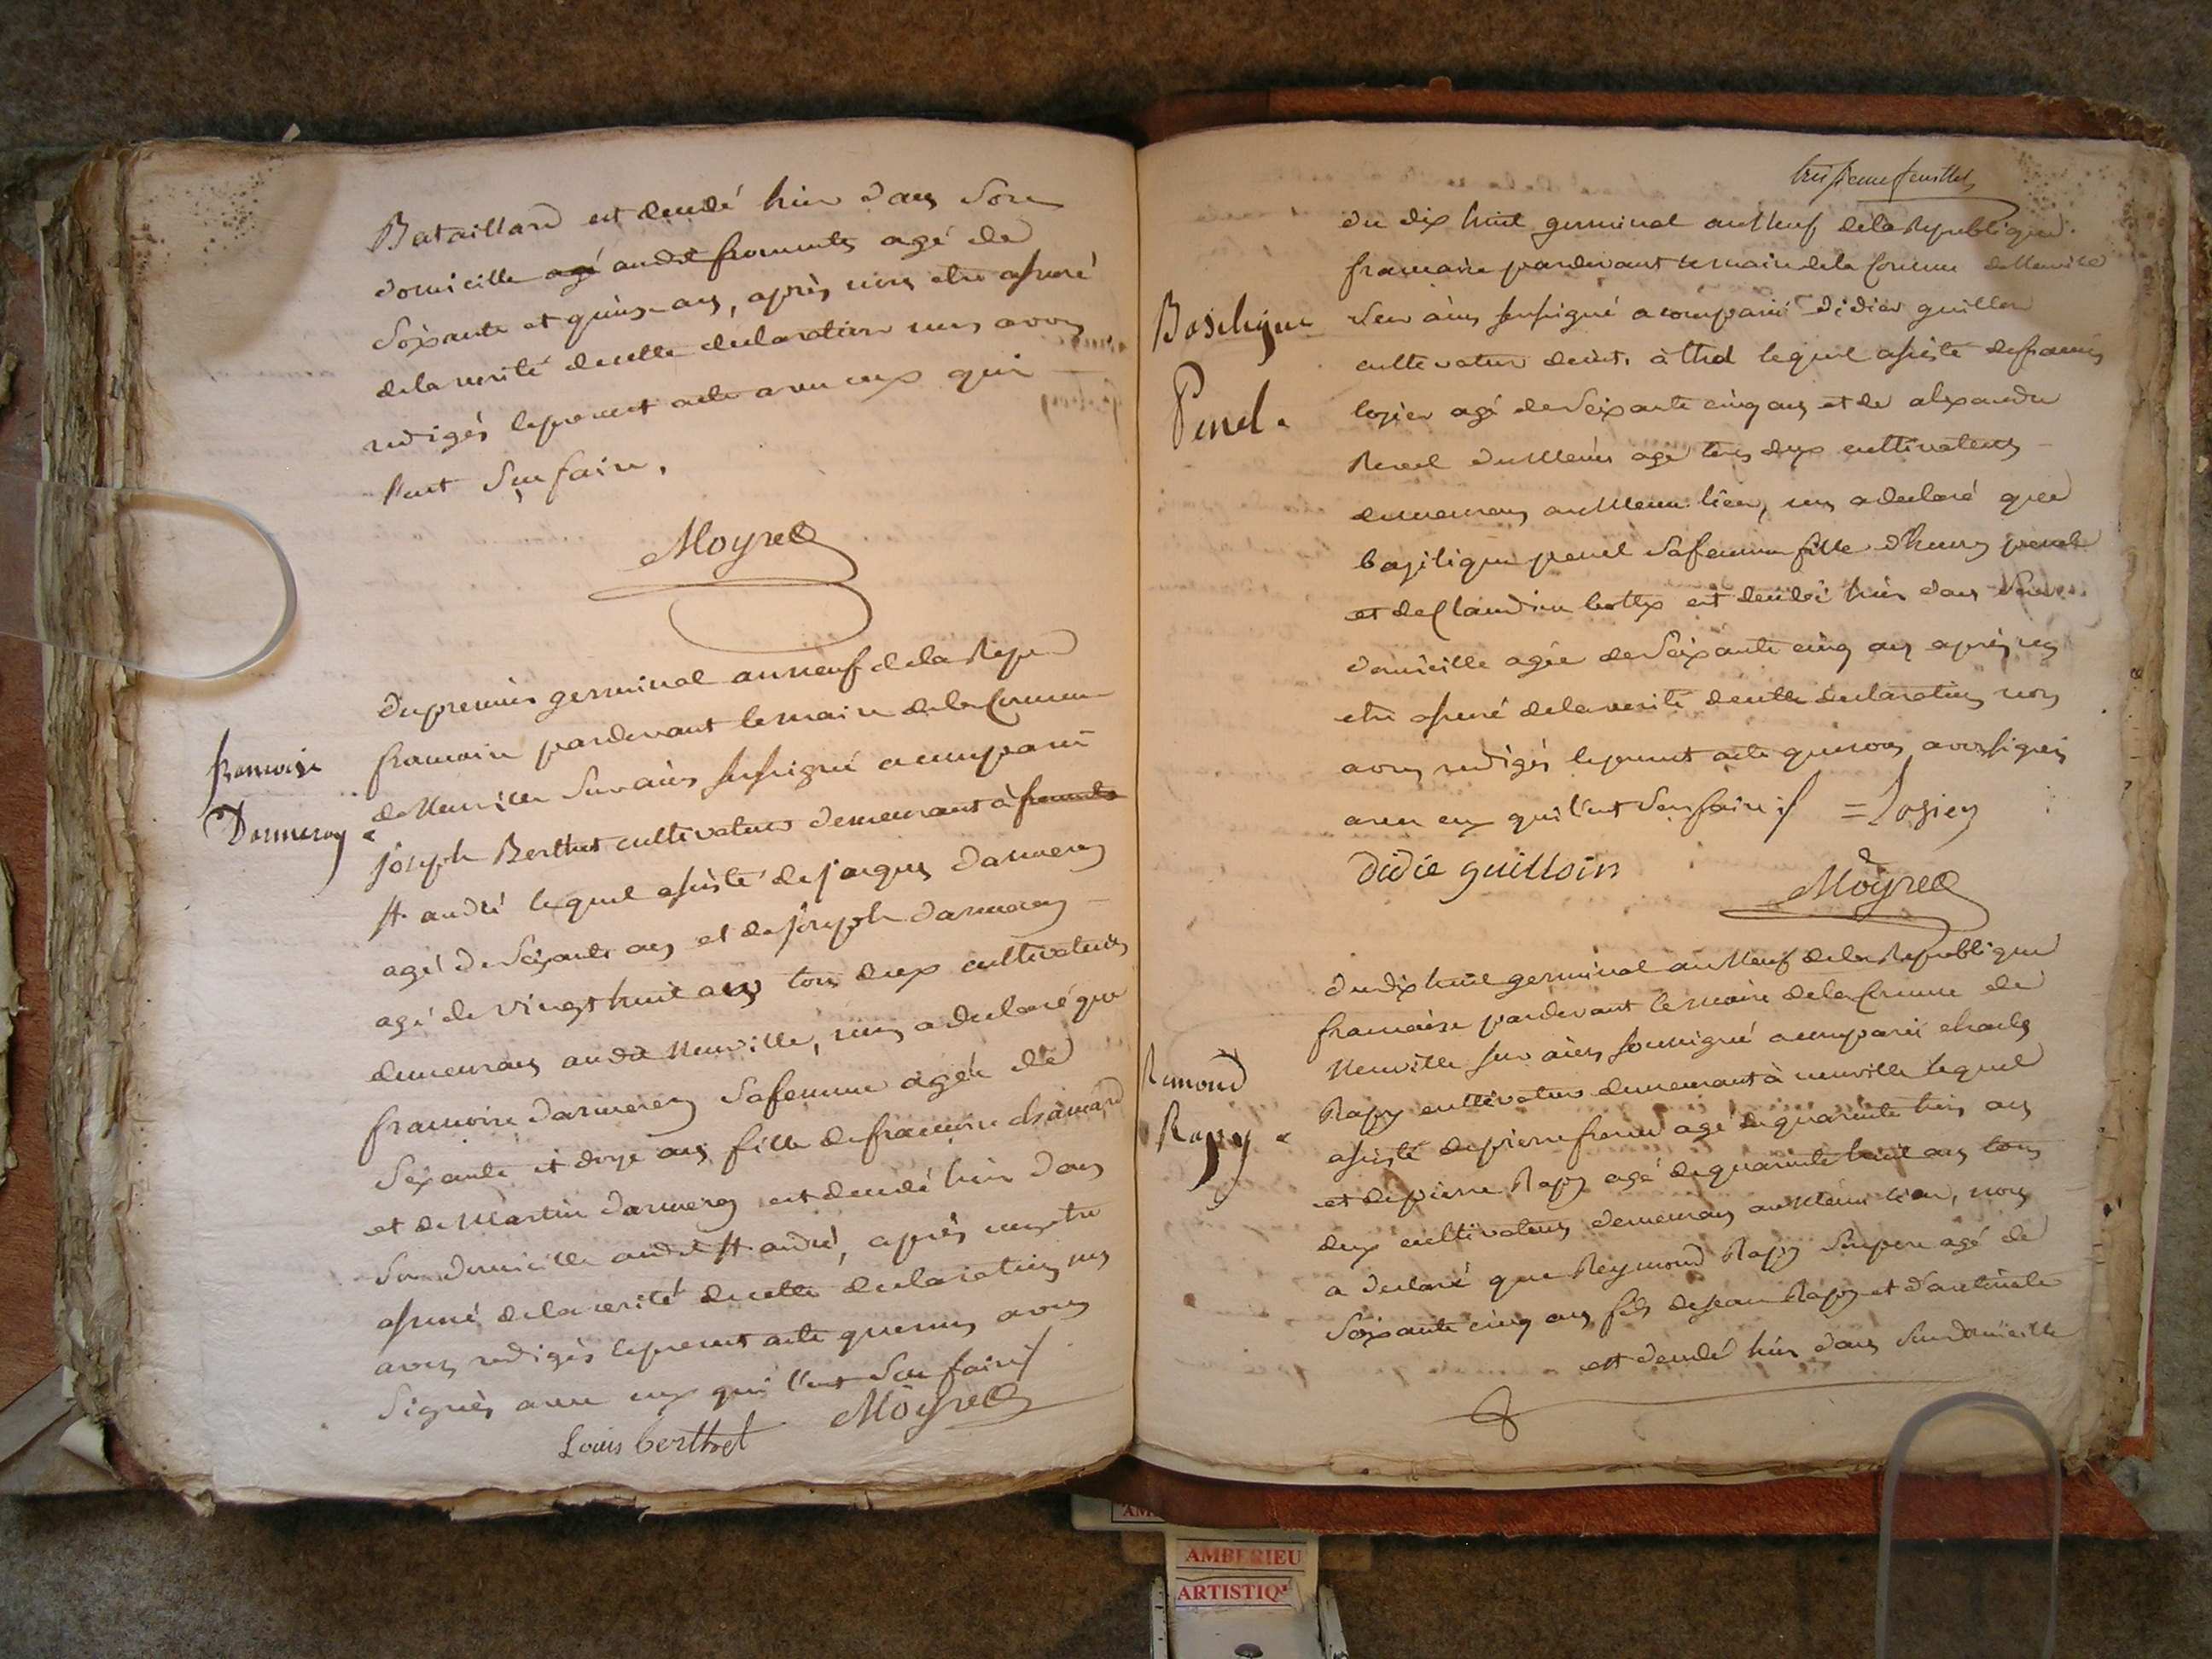 Bataillard est decedé hier dans son
domicille agé audit froment agé de
soixante et quinze ans, après nous etre assuré
de la verité de cette declaration nous avons
redigés le present acte avec eux qui
l'ont sçu faire,
Moyret
du premier germinal an neuf de la Repu
francaise pardevant le maire de la Commune
francoise
Darmeray
de Neuville sur ains soussigné a comparu
joseph Berthet cultivateur demeurant à
st andré lequel assisté de jacques Darmerey
agé de soixante ans et de joseph darmerey
agé de vingt huit ans tous deux cultivateurs
demeurans audit Neuville, nous a declaré que
francoise darmerey sa femme agée de
soixante et onze ans fille de francoise chamard
et de Martin darmerey est decedé hier dans
son domicille audit st andré, après nous etre
assuré de la verité de cette declaration nous
avons redigés le present acte que nous avons
signés avec eux qui l'ont sçu faire
Louis berthet Moyret
troisieme feuillet
du dix huit germinal an Neuf de la Republique
francaise pardevant le maire de la Commune de Neuville
Basiligue
Penel
sur ains soussigné a comparu Didier guillon
cultivateur demt. à thol lequel assisté de francois
lozier agé de soixante cinq ans et de alexandre
Revel du Meme age tous deux cultivateurs
demeurans au Meme lieu, nous a declaré que
basiligue penel sa femme fille d'henry penel
et de Claudine est decedé hier dans son
domicille agée de soixante cinq ans après nous
etre assuré de la verité de cette declaration nous
avons redigés le present acte que nous avons signés
avec eux qui l'ont sçu faire = Lozier
didie guilloin
Moyret
du dix huit germinal an Neuf de la Republique
francaise pardevant le maire de la Commune de
Remond
Rapy
Neuville sur ains soussigné a comparu charles
Rapy cultivateur demeurant à neuville lequel
assisté de pierre agé de quarante trois ans
et de pierre Rapy agé de quarante huit ans tous
deux cultivateurs demeurans au Meme lieu, nous
a declaré que Reymond Rapy son pere agé de
soixante cinq ans fils de jean Rapy et d'antoinette
est decedé hier dans son domicille
AMBERIEU
ARTISTIQ